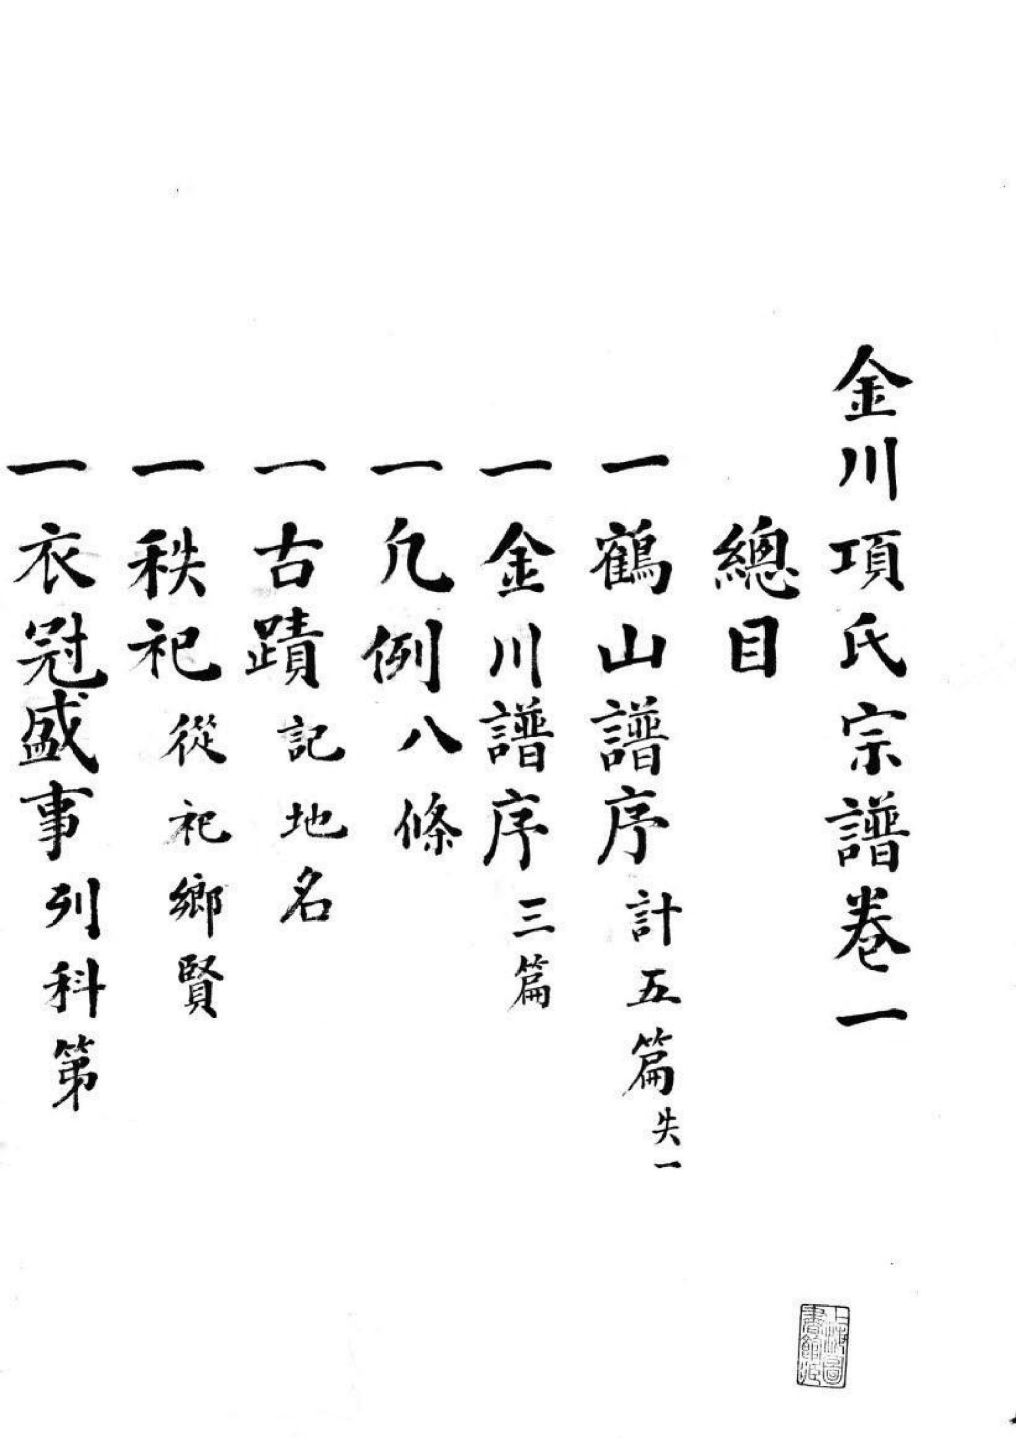 金川項氏宗譜卷一
總目
一鶴山譜序計五篇失一
一金川譜序三篇
一凡例八條
一古蹟記地名
一秩祀從祀鄉賢
一衣冠盛事列科第
上海圖書館藏